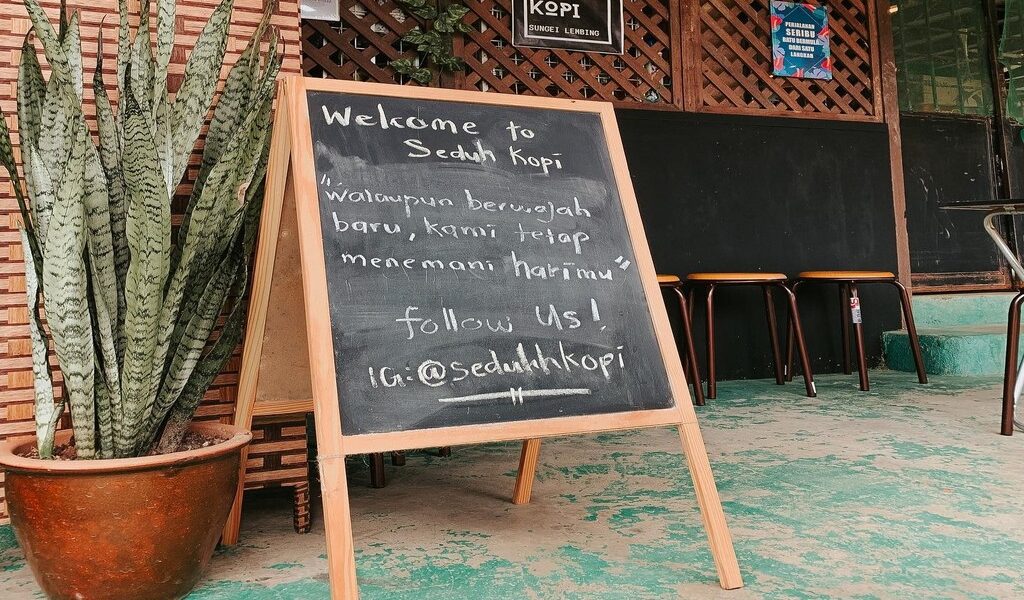 KOPI
SUNGEI LEMBING
PERJALANAN
SERIBU
BATU BERMULA
DARI SATU
LANGKAH
Welcome to
Seduh Kopi
"Walaupun berwajah
baru, kami tetap
menemani harimu"
follow Us!
IG:@seduhhkopi